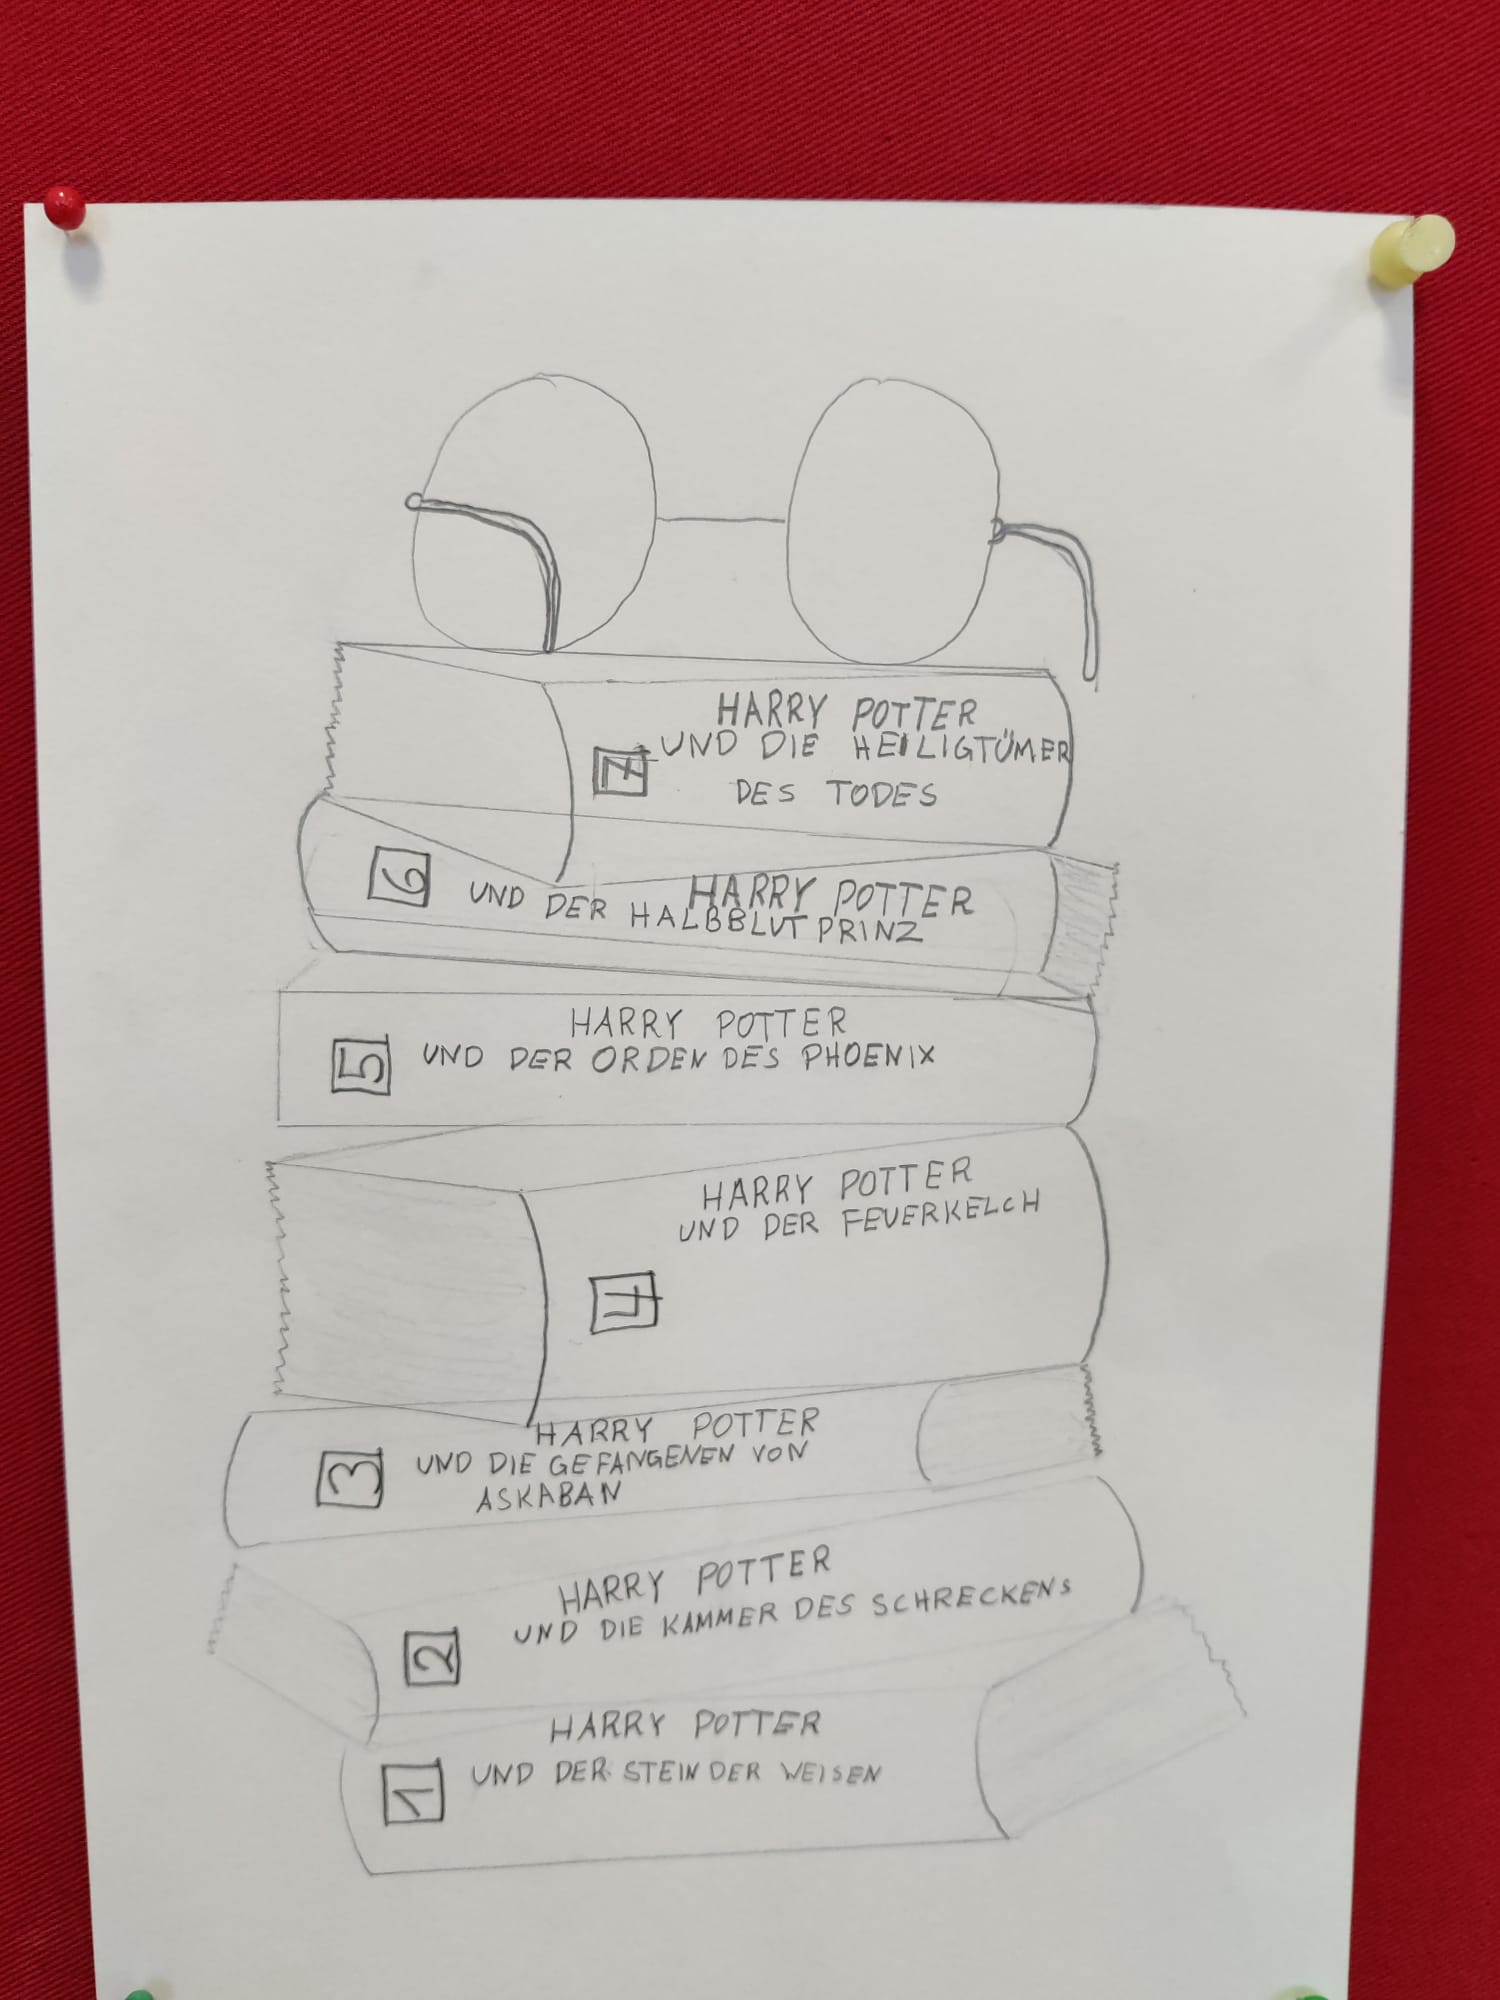 HARRY POTTER
7 UND DIE HEILIGTÜMER
DES TODES
HARRY POTTER
6 UND DER HALBBLUTPRINZ
HARRY POTTER
5 UND DER ORDEN DES PHOENIX
HARRY POTTER
UND DER FEUERKELCH
4
HARRY POTTER
3 UND DIE GEFANGENEN VON
ASKABAN
HARRY POTTER
UND DIE KAMMER DES SCHRECKENS
2
HARRY POTTER
1 UND DER STEIN DER WEISEN